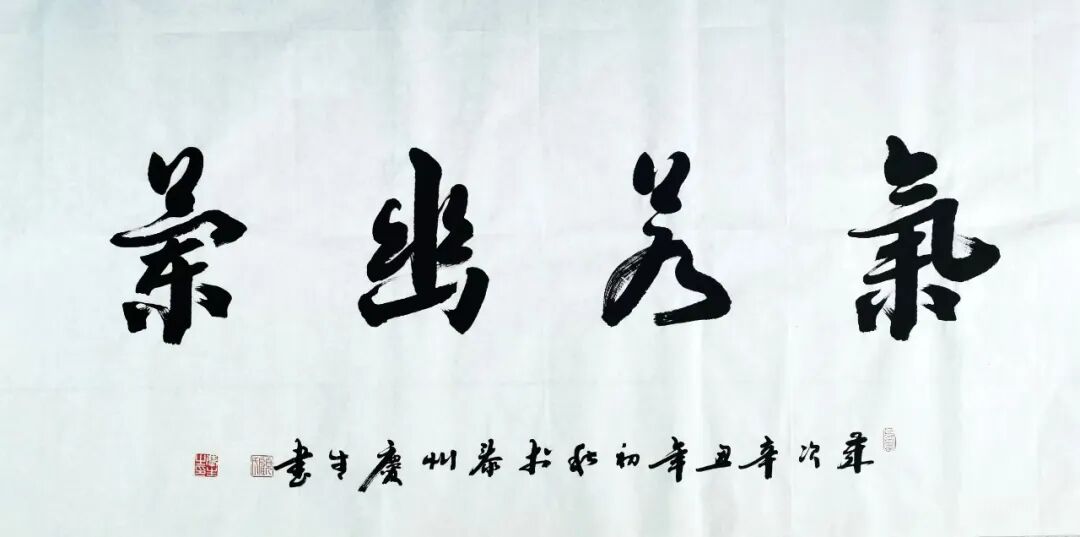 氣若幽蘭
歲次辛丑年初秋於泰州慶生書